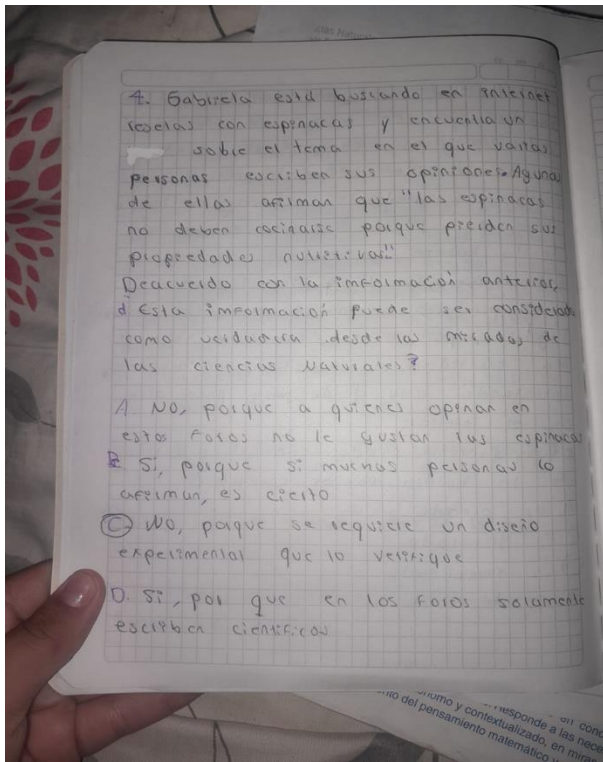 4. Gabriela está buscando en internet
resetas con espinacas y encuentra un
sobre el tema en el que varias
personas escriben sus opiniones. Aguna
de ellas afirman que "las espinacas
no deben cocinarse porque pierden sus
propiedades nutritivas"
Deacuerdo con la información anterior,
¿Esta información puede ser considerada
como verdadera desde las miradas de
las ciencias Naturales?
A. NO, porque a quienes opinan en
estos foros no le gustan las espinacas
B. Si, porque si muchas personas lo
afirman, es cierto
C. NO, porque se requiere un diseño
experimental que lo verifique
D. Si, por que en los foros solamente
escriben cientificos
esponde a las nece
nto del pensamiento matemático
onomo y contextualizado, en